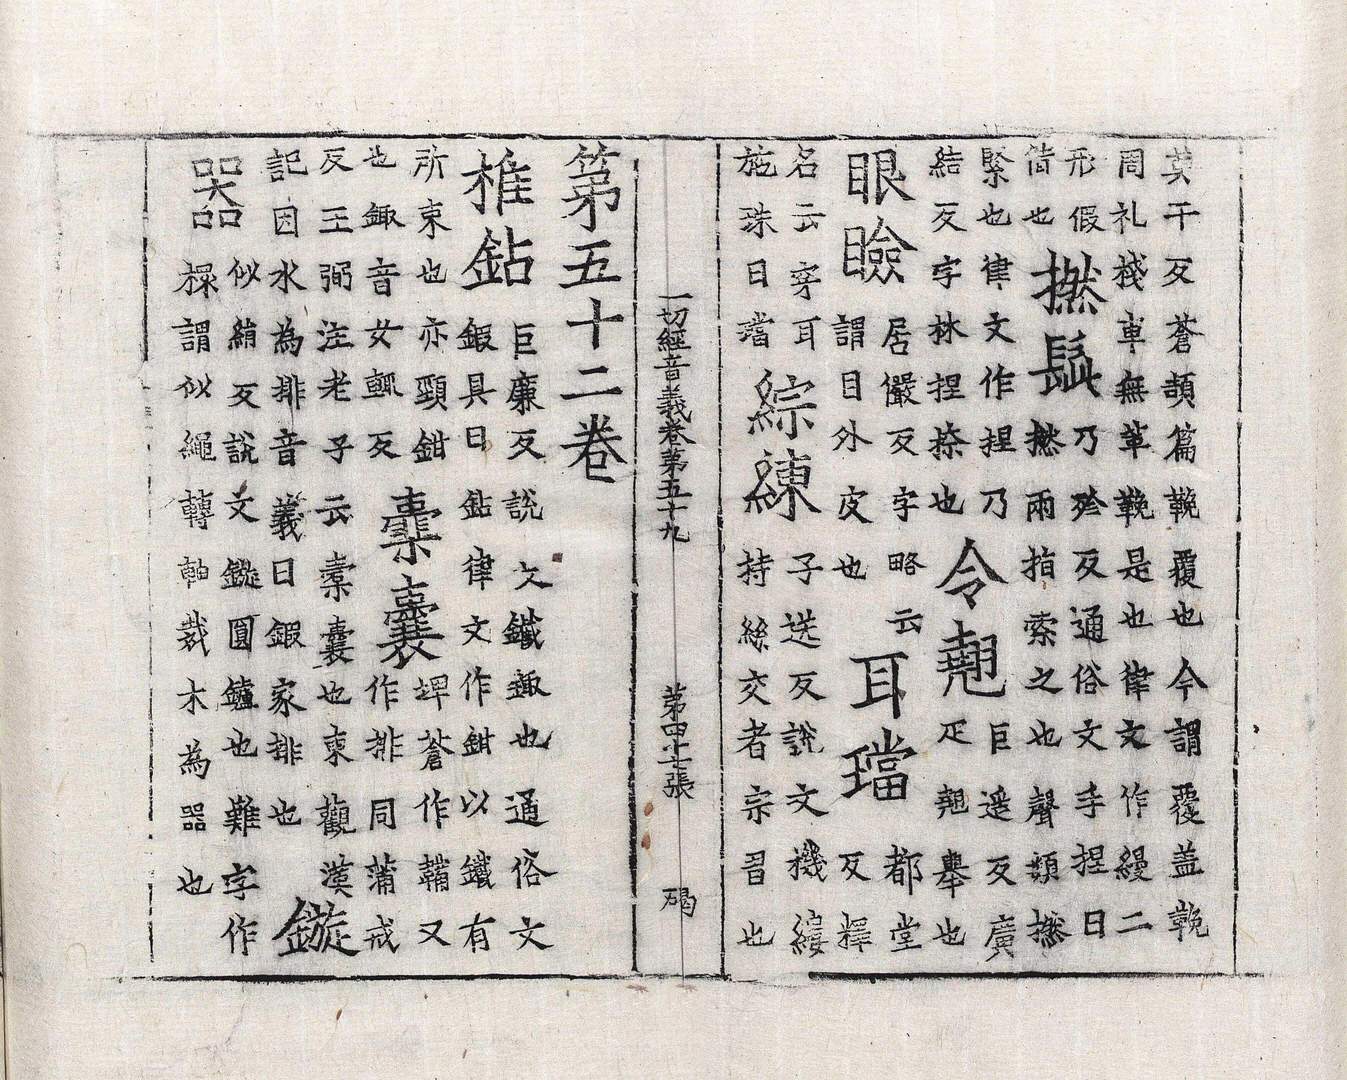 莫干反蒼頡篇鞔覆也今謂覆盖鞔
周礼棧車無革鞔是也律文作縵二
形假
借也
撚髭
乃殄反通俗文手捏曰
撚兩指索之也聲類撚
緊也律文作捏乃
結反字林捏捺也
令翹
巨遥反廣
疋翹舉也
眼瞼
居儼反字略云
謂目外皮也
耳璫
都堂
反釋
名云穿耳
施珠曰璫
綜練
子送反說文機縷
持絲交者宗習也
一切經音義卷第五十九
第四十七張
碣
第五十二卷
椎鉆
巨廉反說文鐵鋷也通俗文
鍜具曰鉆律文作鉗以鐵有
所束也亦頸鉗
也鋷音女輒反
橐囊
埤蒼作韛又
作排同蒲戒
反王弼注老子云橐囊也東觀漢
記因水為排音義曰鍜家排也
鏇
器
似絹反說文鏇圓鑪也難字作
檈謂以繩轉軸裁木為器也